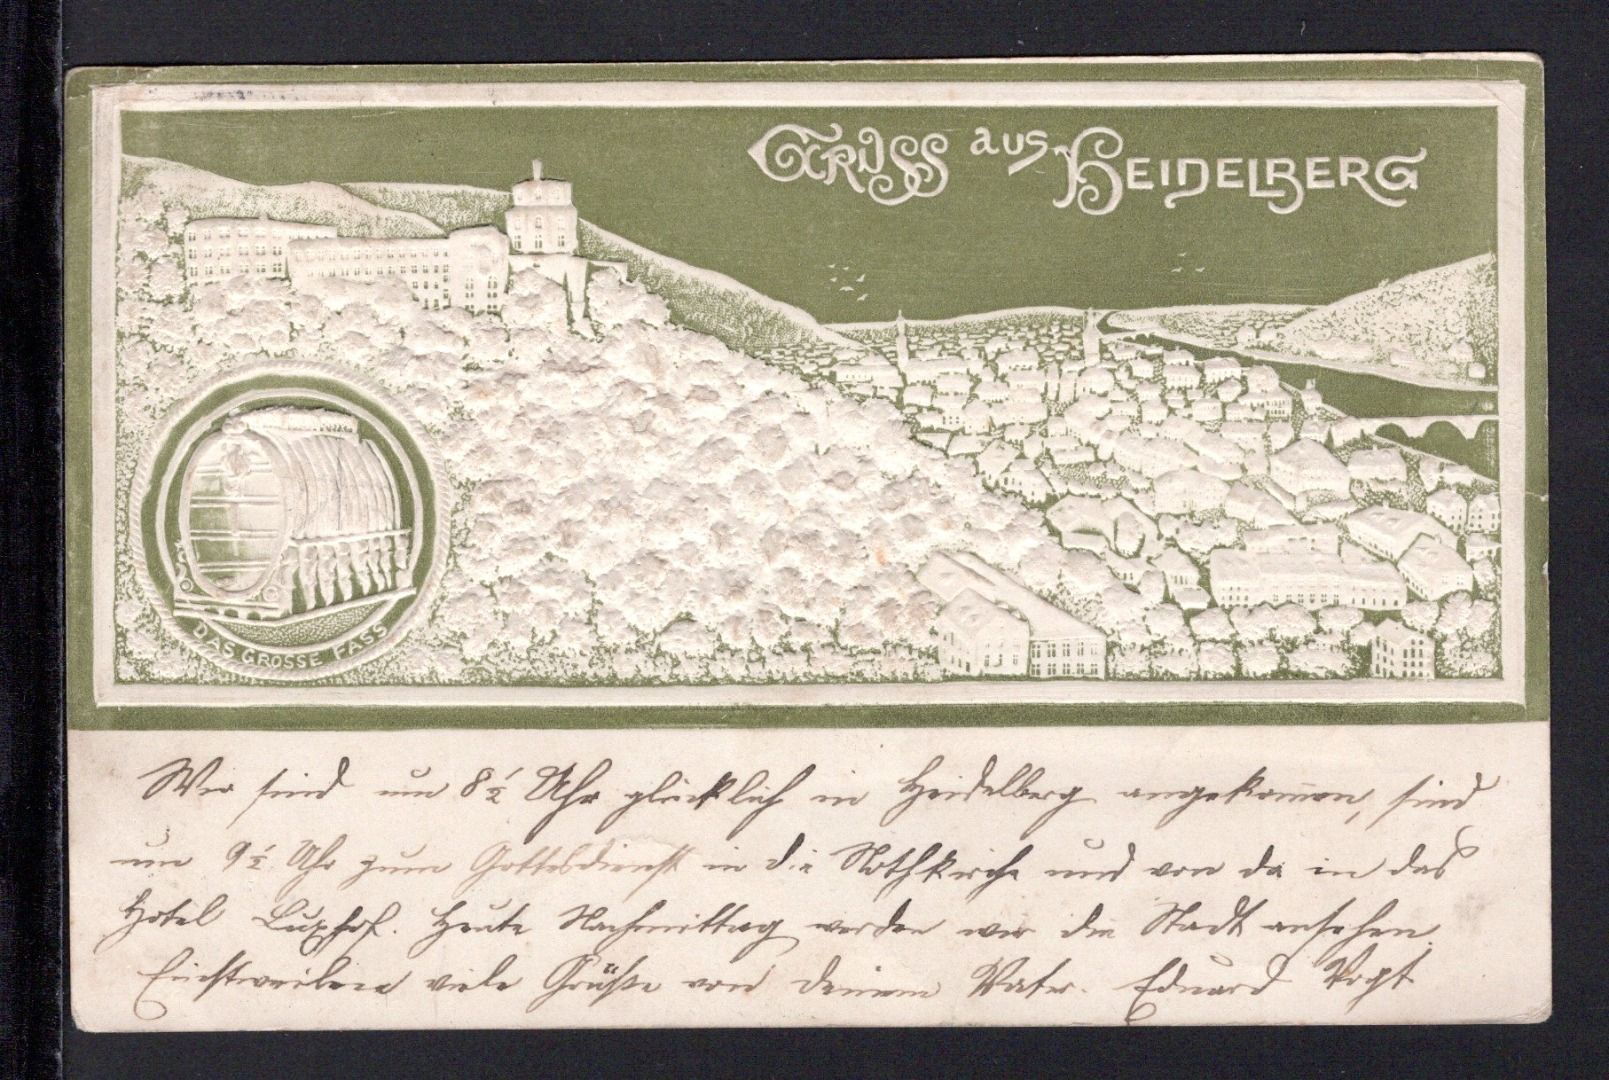 GRUSS aus HEIDELBERG
DAS GROSSE FASS
Wir sind um 8½ Uhr glücklich in Heidelberg angekommen, sind
um 9½ Uhr zum Gottesdienst in die und von da in das
Hotel Luxhof. Heute Nachmittag werden wir die Stadt ansehen.
Einstweilen viele Grüße von deinem Vater. Eduard Vogt